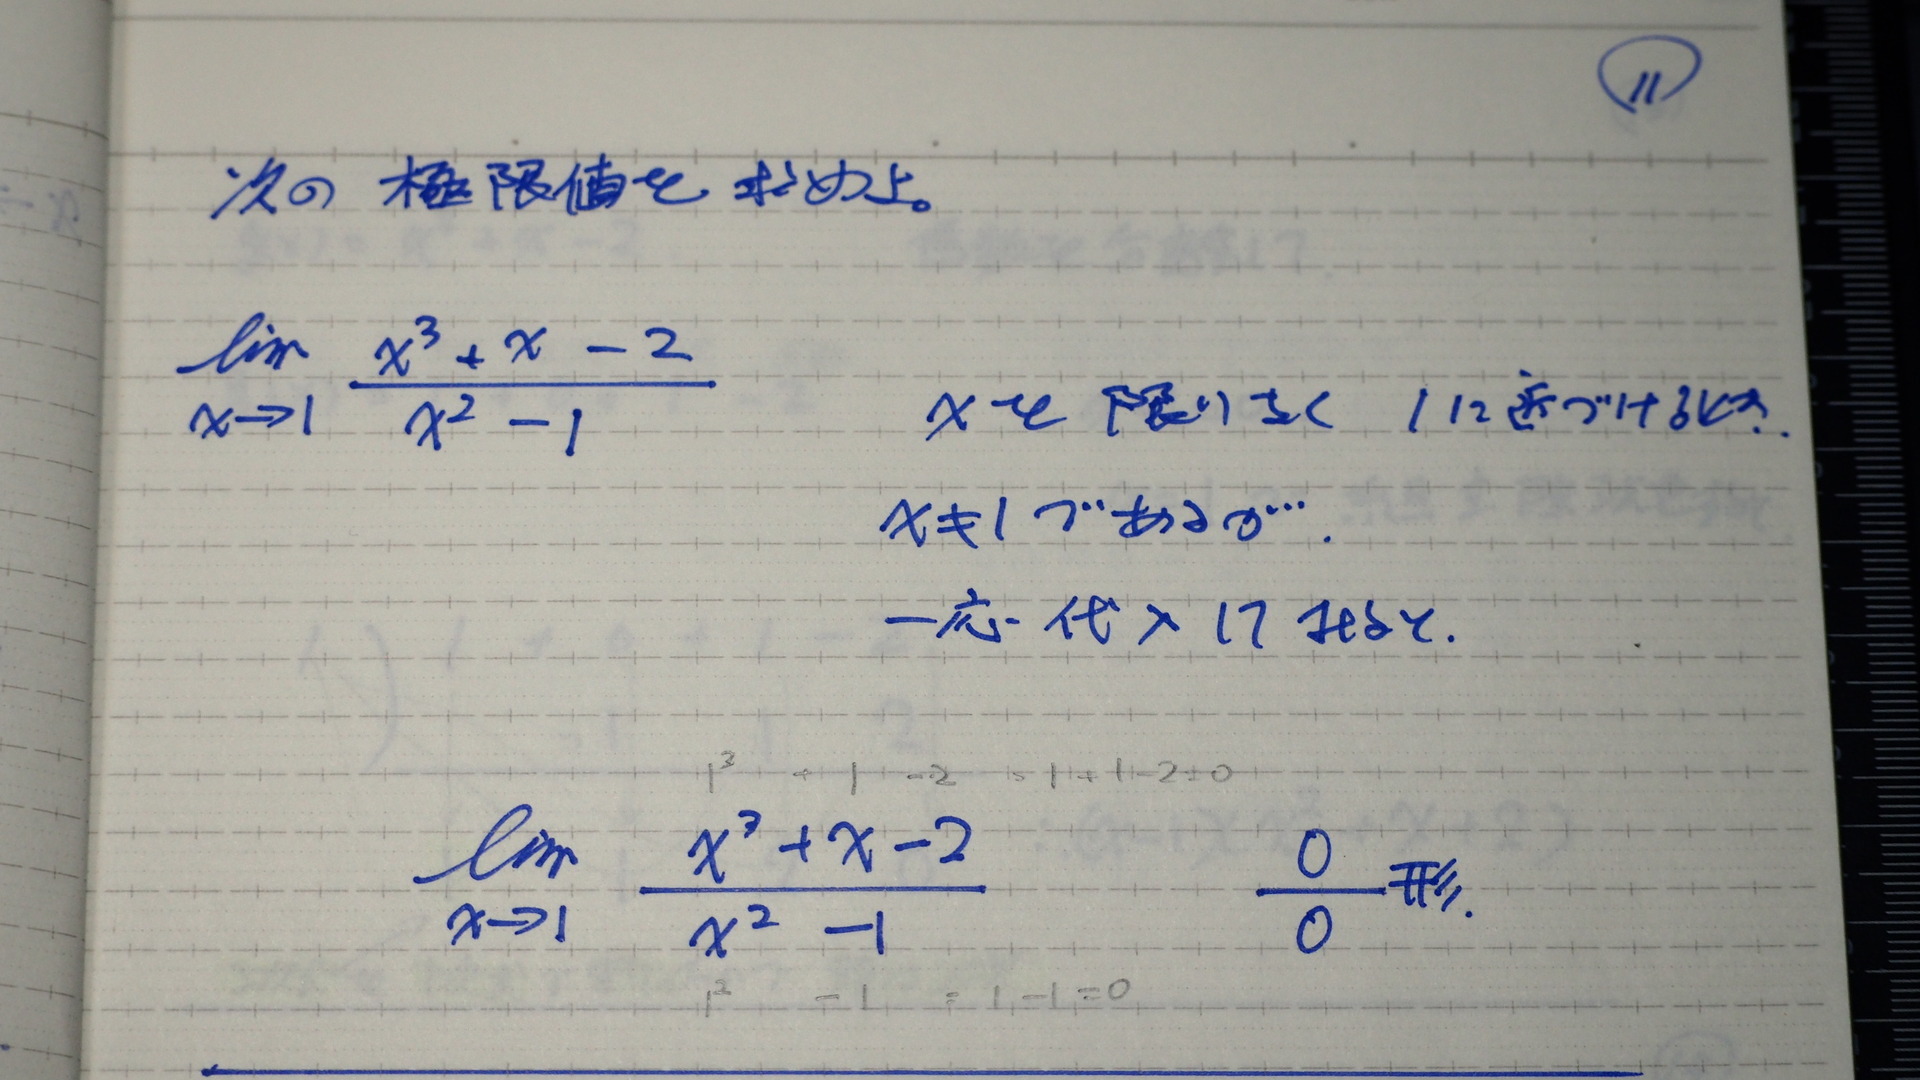 11
次の 極限値を 求めよ。
lim x→1 (x³ + x - 2)/(x² - 1)
xを 限りなく 1に近づけるとき.
x≠1 であるが….
一応 代入 して みると.
1³ + 1 - 2 = 1 + 1 - 2 = 0
lim x→1 (x³ + x - 2)/(x² - 1) 0/0 形.
1² - 1 = 1 - 1 = 0